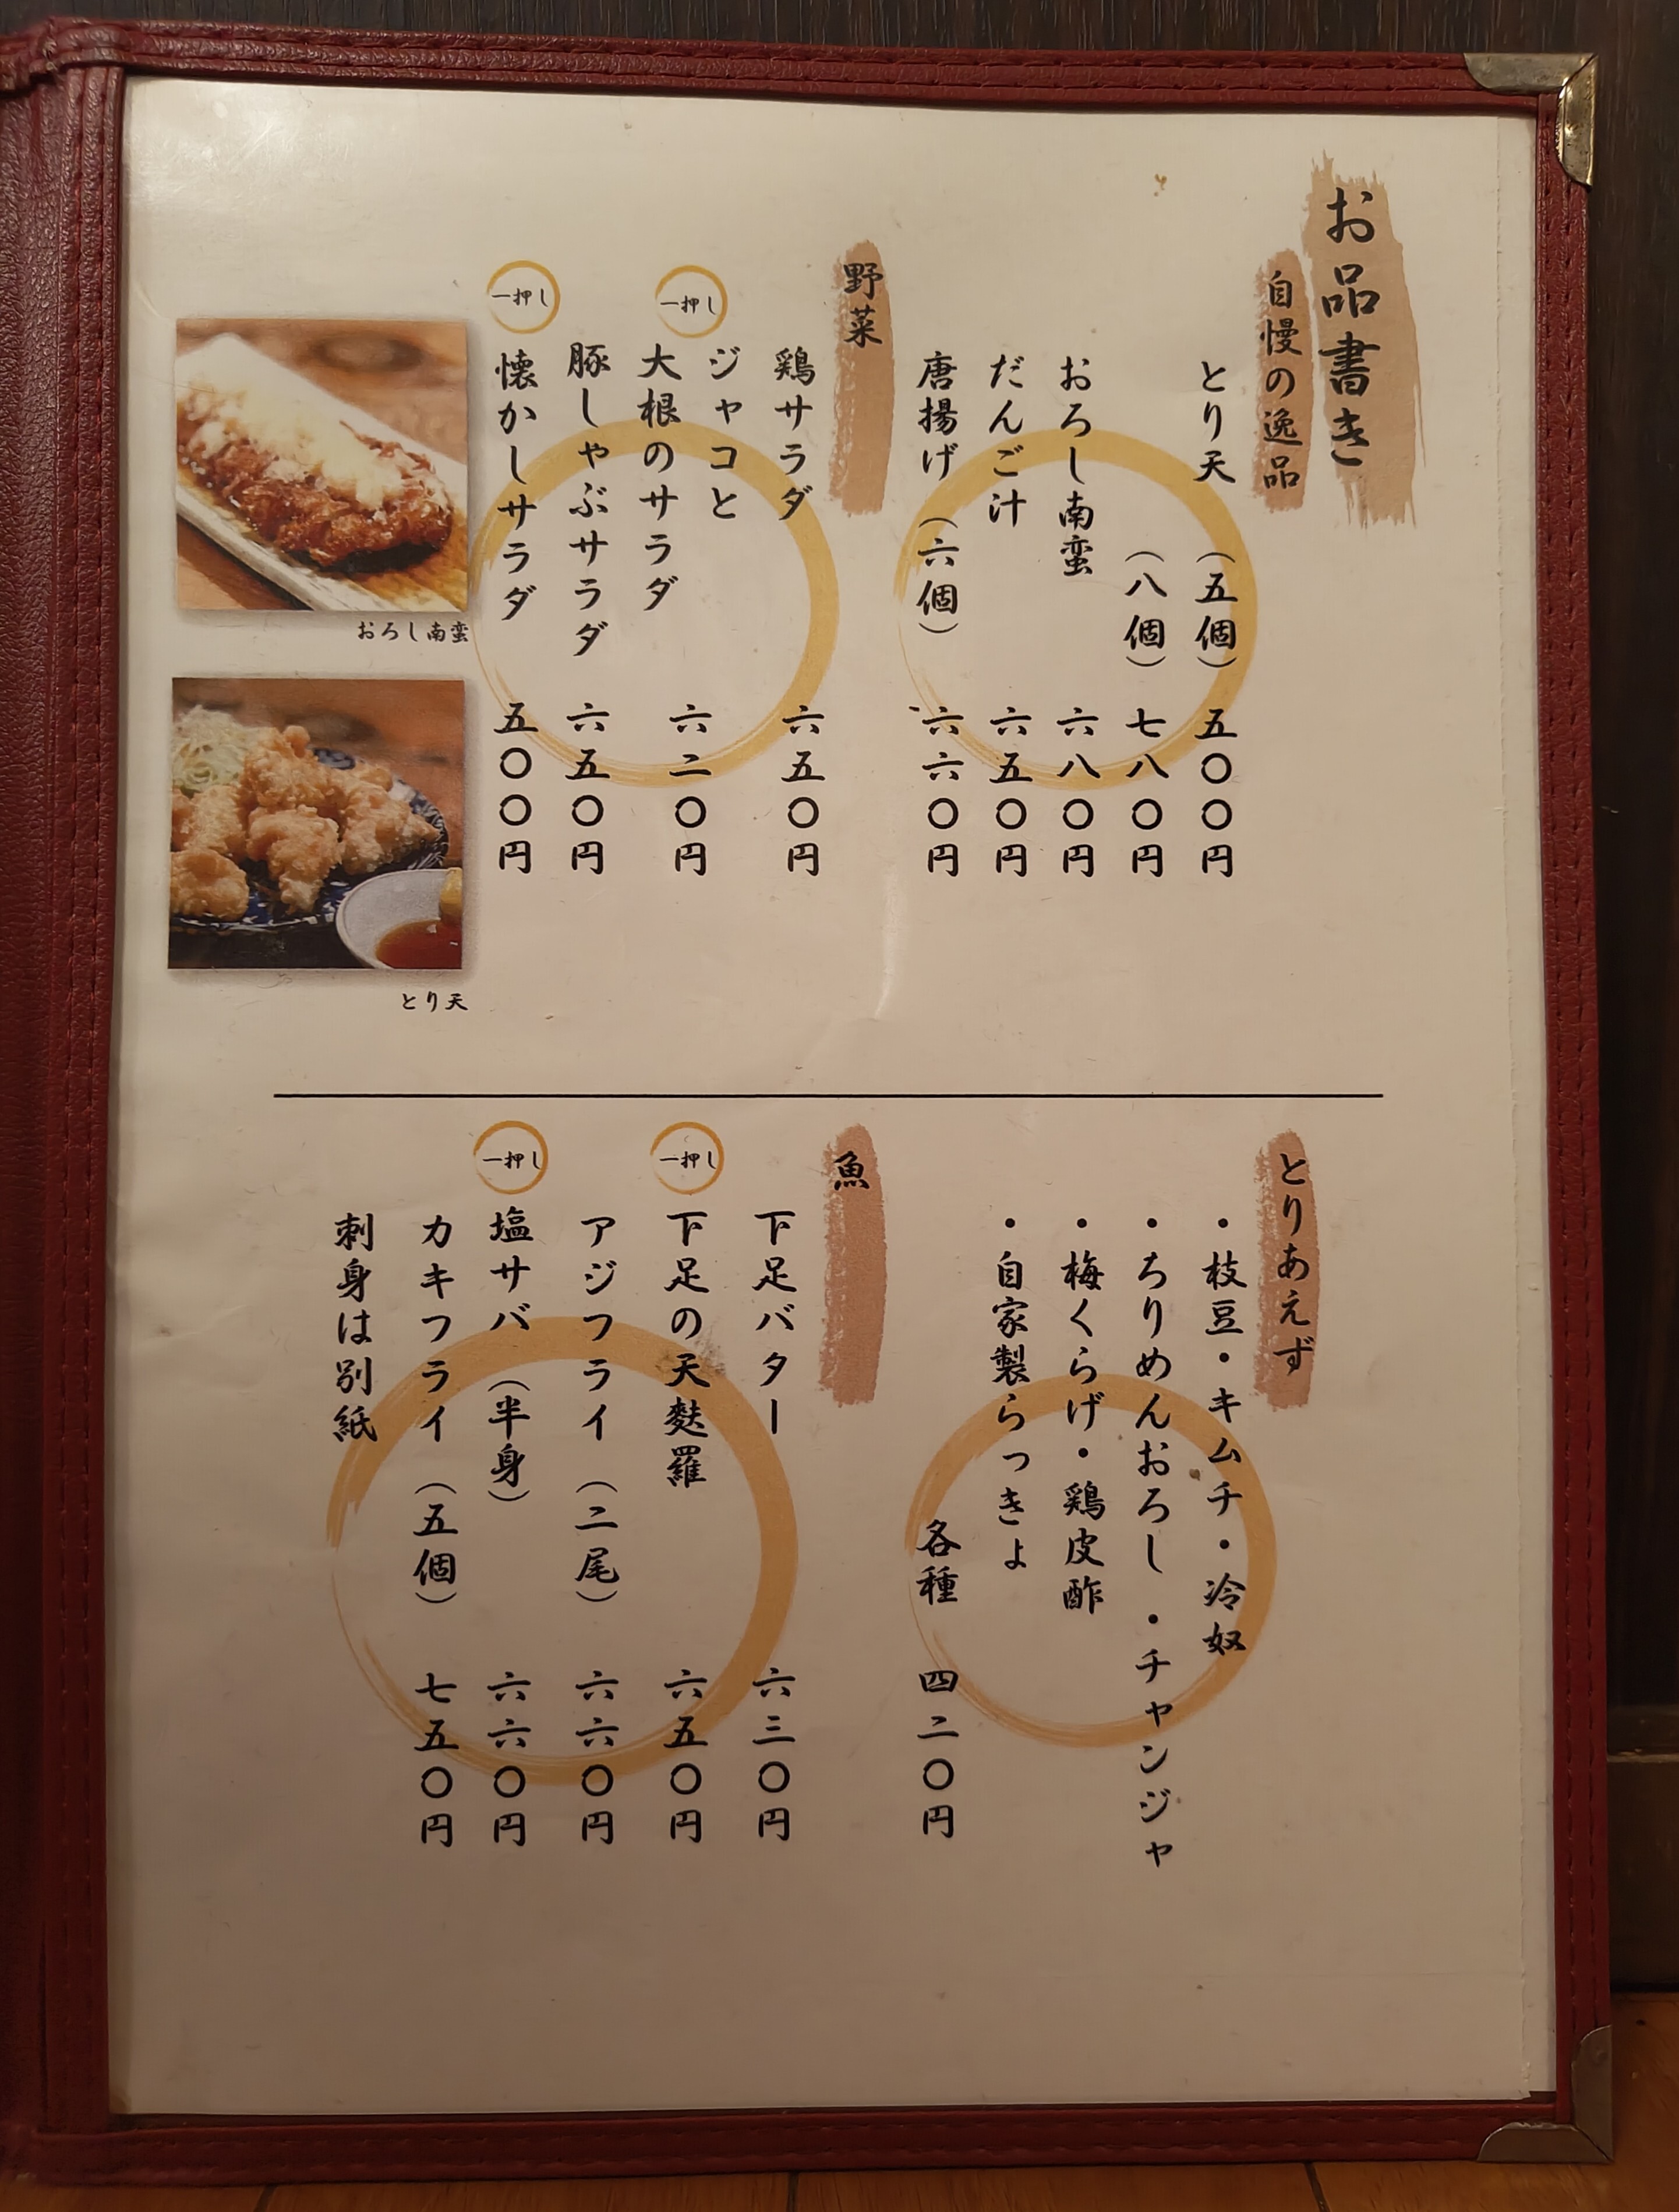 お品書き
自慢の逸品
とり天 （五個） 五〇〇円
（八個） 七八〇円
おろし南蛮 六八〇円
だんご汁 六五〇円
唐揚げ（六個） 六六〇円
野菜
鶏サラダ 六五〇円
一押し
ジャコと
大根のサラダ 六二〇円
豚しゃぶサラダ 六五〇円
一押し
懐かしサラダ 五〇〇円
おろし南蛮
とり天
とりあえず
・枝豆・キムチ・冷奴
・ちりめんおろし ・チャンジャ
・梅くらげ・鶏皮酢
・自家製らっきょ
各種 四二〇円
魚
下足バター 六三〇円
一押し
下足の天麩羅 六五〇円
アジフライ（二尾） 六六〇円
一押し
塩サバ（半身） 六六〇円
カキフライ（五個） 七五〇円
刺身は別紙